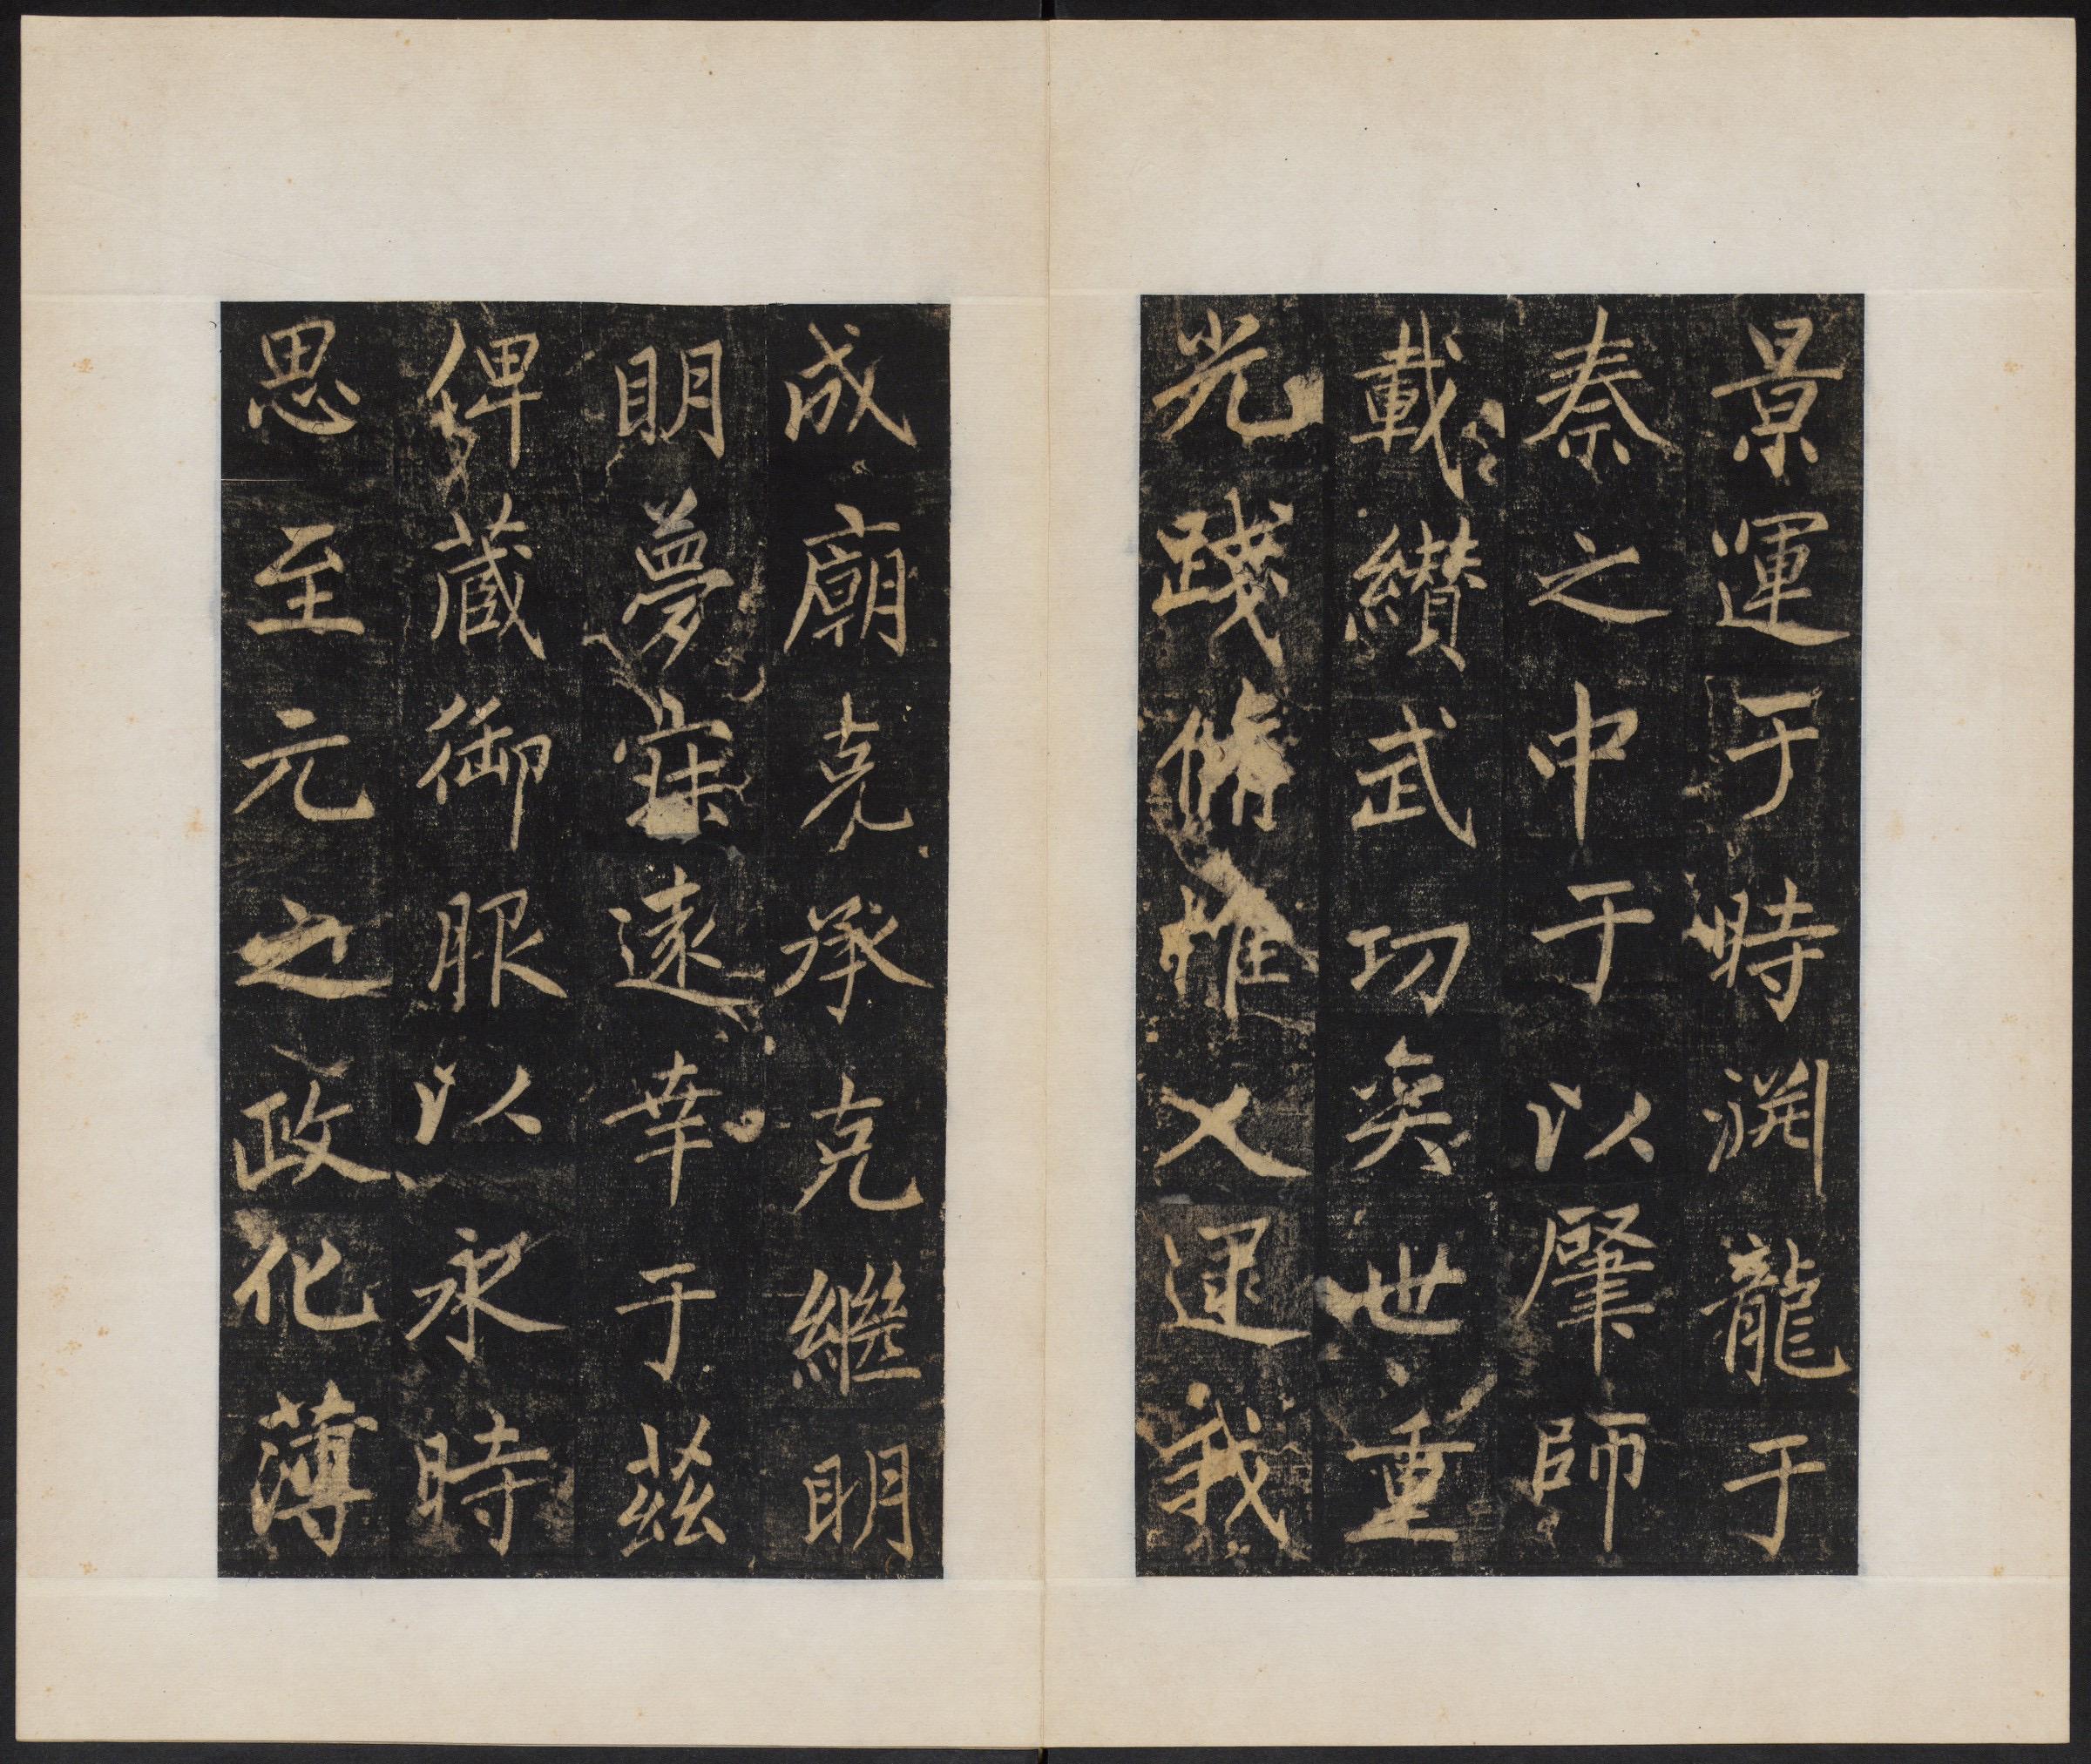 景運于時淵龍于
秦之中于以肇師
載纘武功奕世重
光踐脩惟乂逮我
成廟克承克繼明
明夢寐遠幸于茲
俾蕆御服以永時
思至元之政化薄